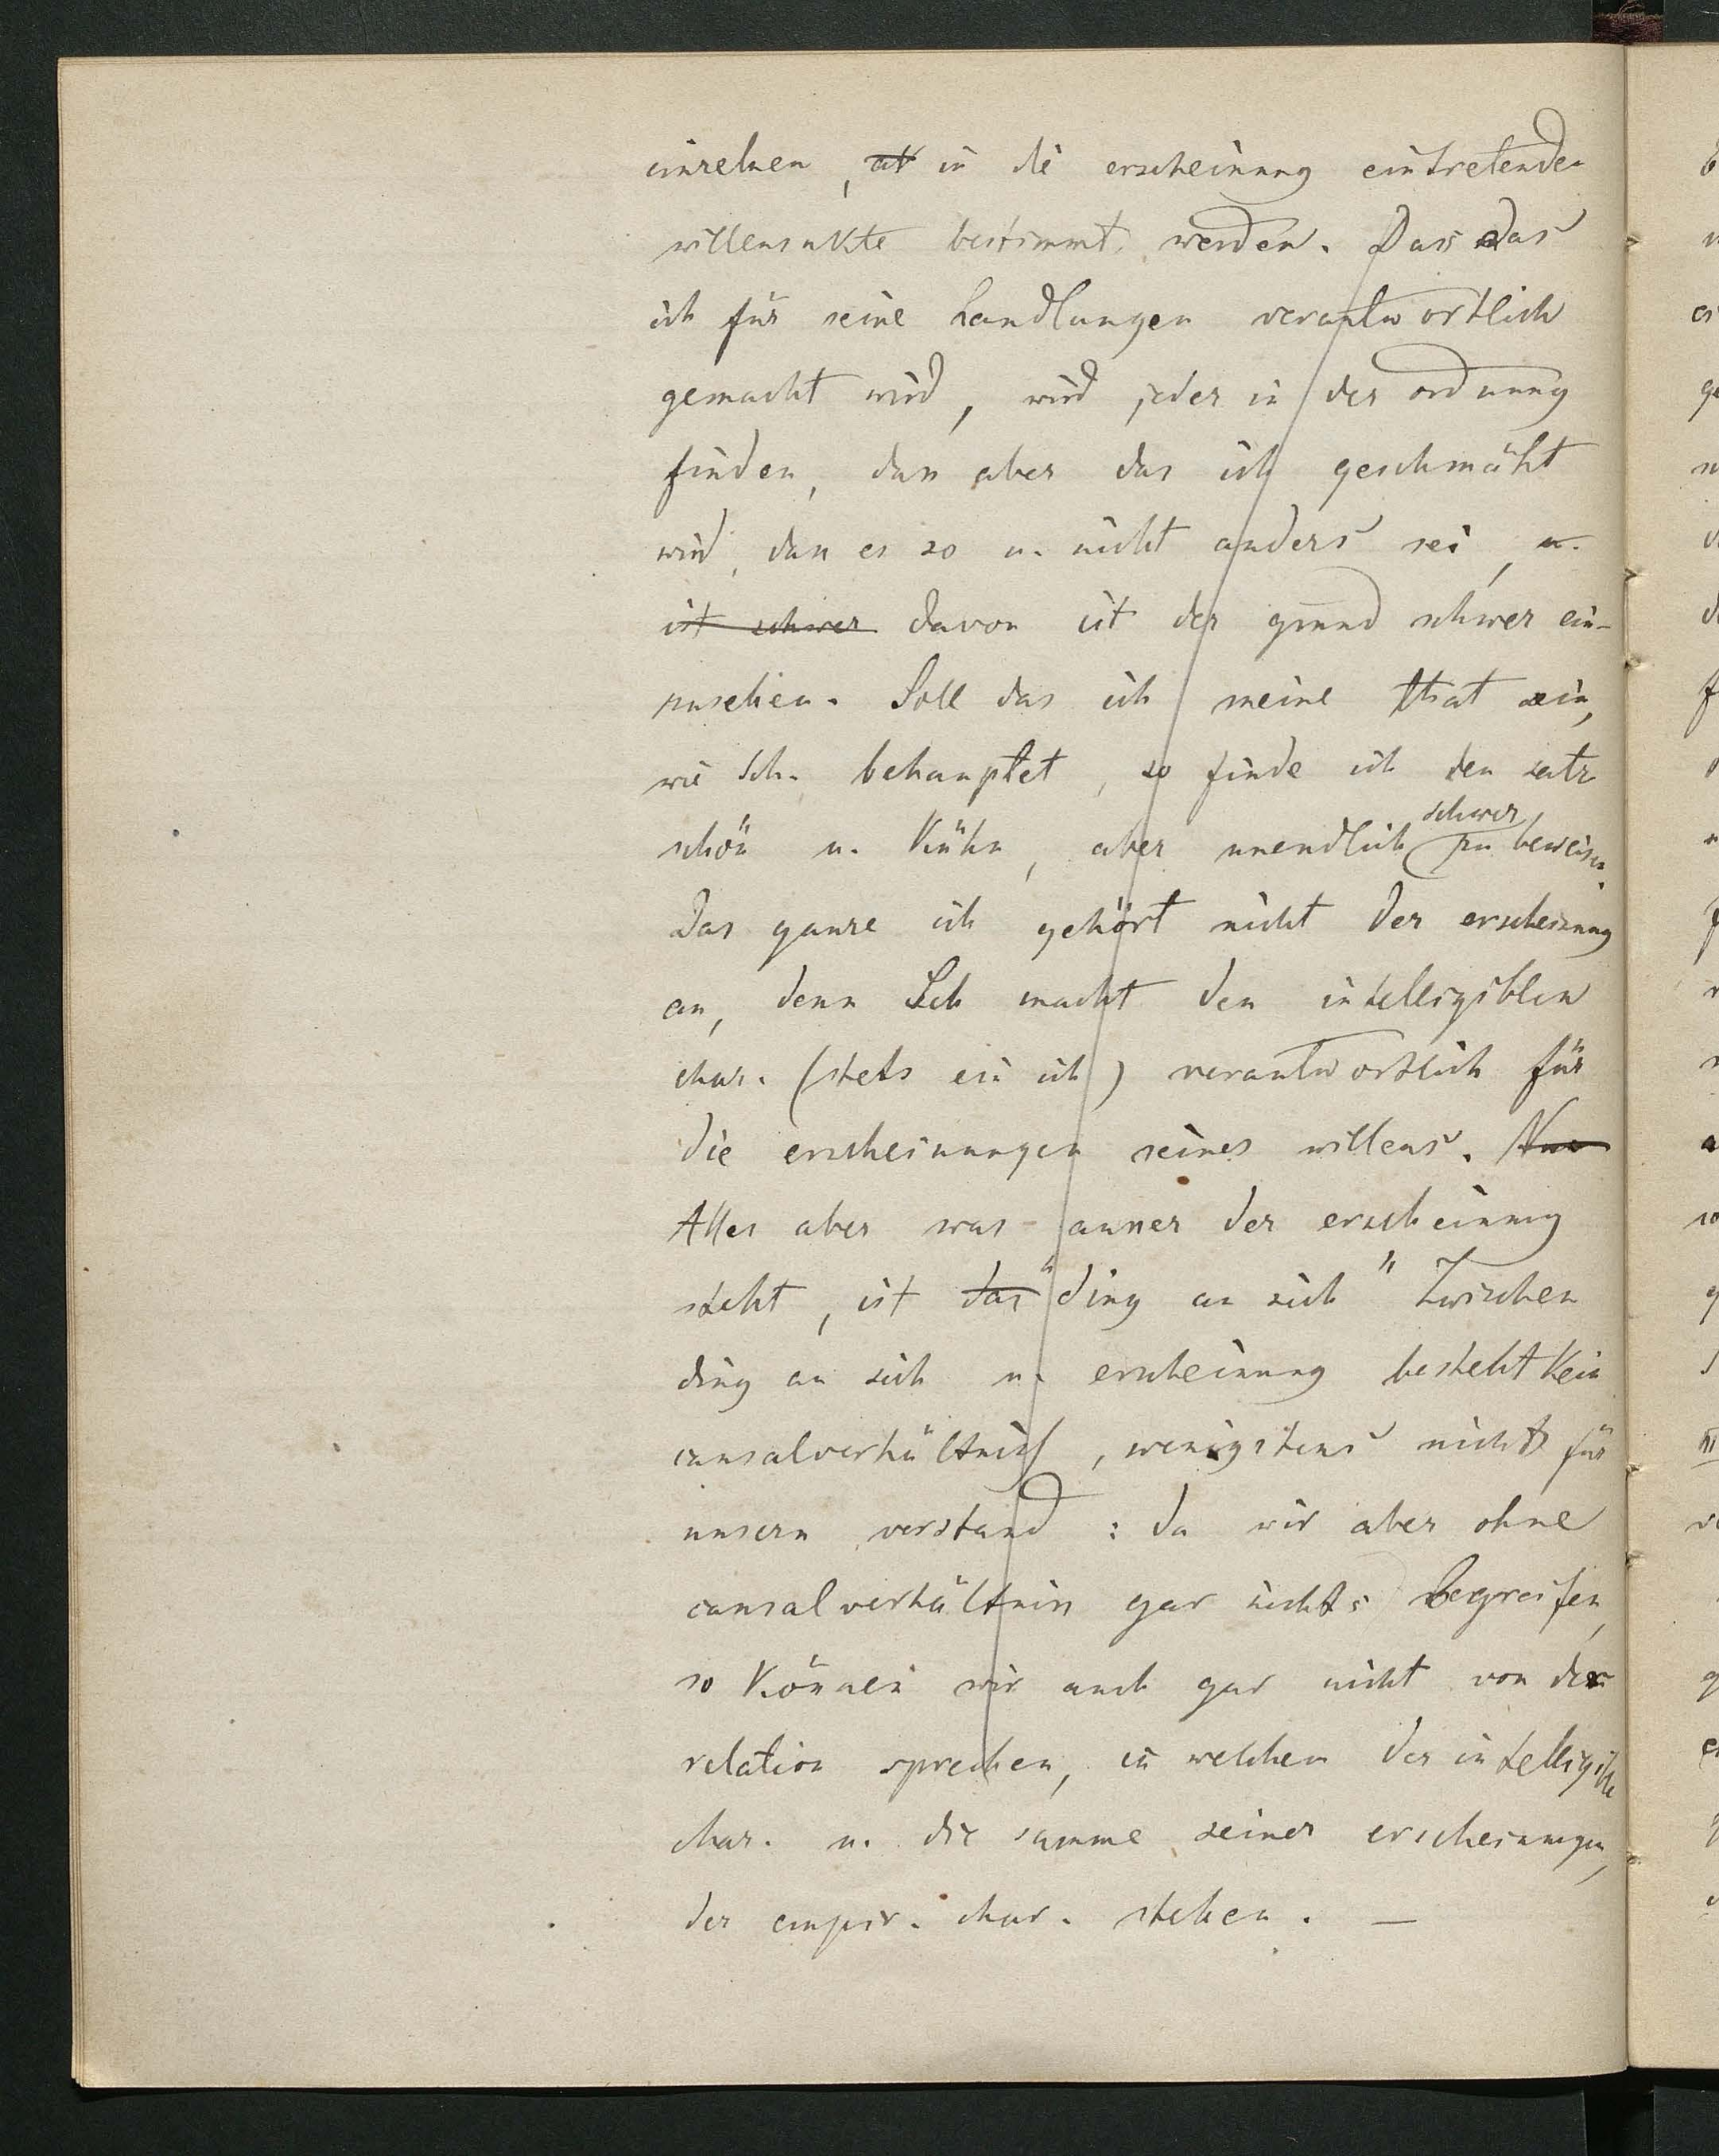 einzelnen, in die erscheinung eintretenden
willensakte bestimmt werden. Dass das
ich für seine handlungen verantwortlich
gemacht wird, wird jeder in der ordnung
finden, dass aber das ich geschmäht
wird, dass es so u. nicht anders sei, u.
ist schwer davon ist der grund schwer ein-
zusehen. Soll das ich meine that sein,
wie Sch. behauptet, so finde ich den satz
schön u. kühn, aber unendlich schwer zu beweisen.
Das ganze ich gehört nicht der erscheinung
an, denn Sch macht den intelligiblen
char. (stets ein ich) verantwortlich für
die erscheinungen seines willens. Nun
Alles aber was ausser der erscheinung
steht, ist das "ding an sich" Zwischen
ding an sich u. erscheinung besteht kein
causalverhältniss, wenigstens nicht für
unsern verstand: da wir aber ohne
causalverhältniss gar nichts begreifen,
so können wir auch gar nicht von der
relation sprechen, in welchem der intelligible
char. u. die summe seiner erscheinungen,
der empir. char. stehen. —